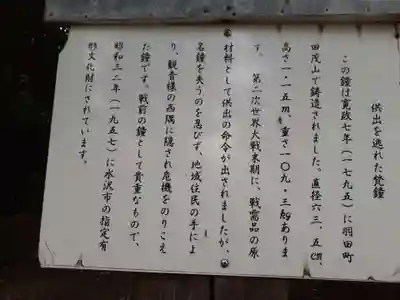 供出を逃れた梵鐘
この鐘は寛政七年(一七九五)に羽田町
田茂山で鋳造されました。直径六三．五㎝、
高さ一・一五m、重さ一〇九・三㎏ありま
す。　第二次世界大戦末期に、戦需品の原
材料として供出の命令が出されましたが、
名鐘を失うのを忍びず、地域住民の手によ
り、観音様の西隅に隠され危機をのりこえ
た鐘です。戦前の鐘として貴重なもので、
昭和三二年(一九五七)に水沢市の指定有
形文化財にされています。